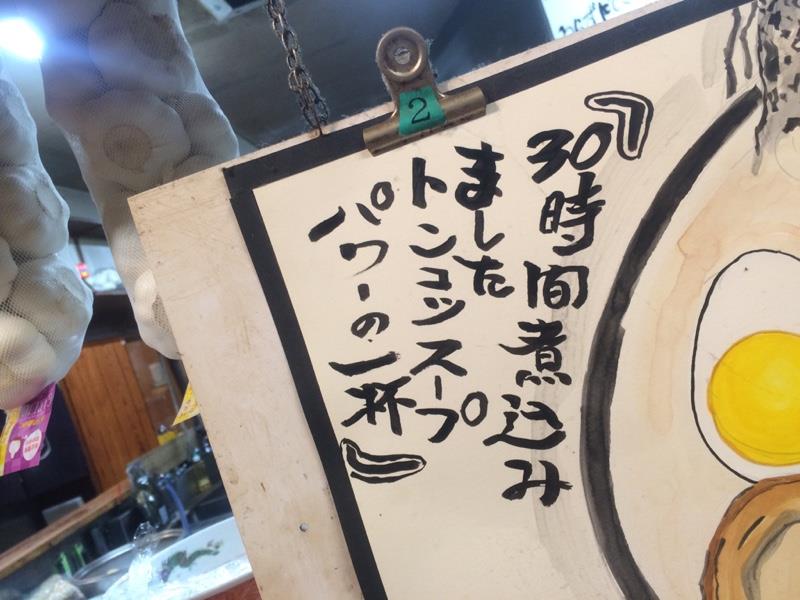 『30時間煮込み
ました
トンコツスープ
パワーの一杯』
2